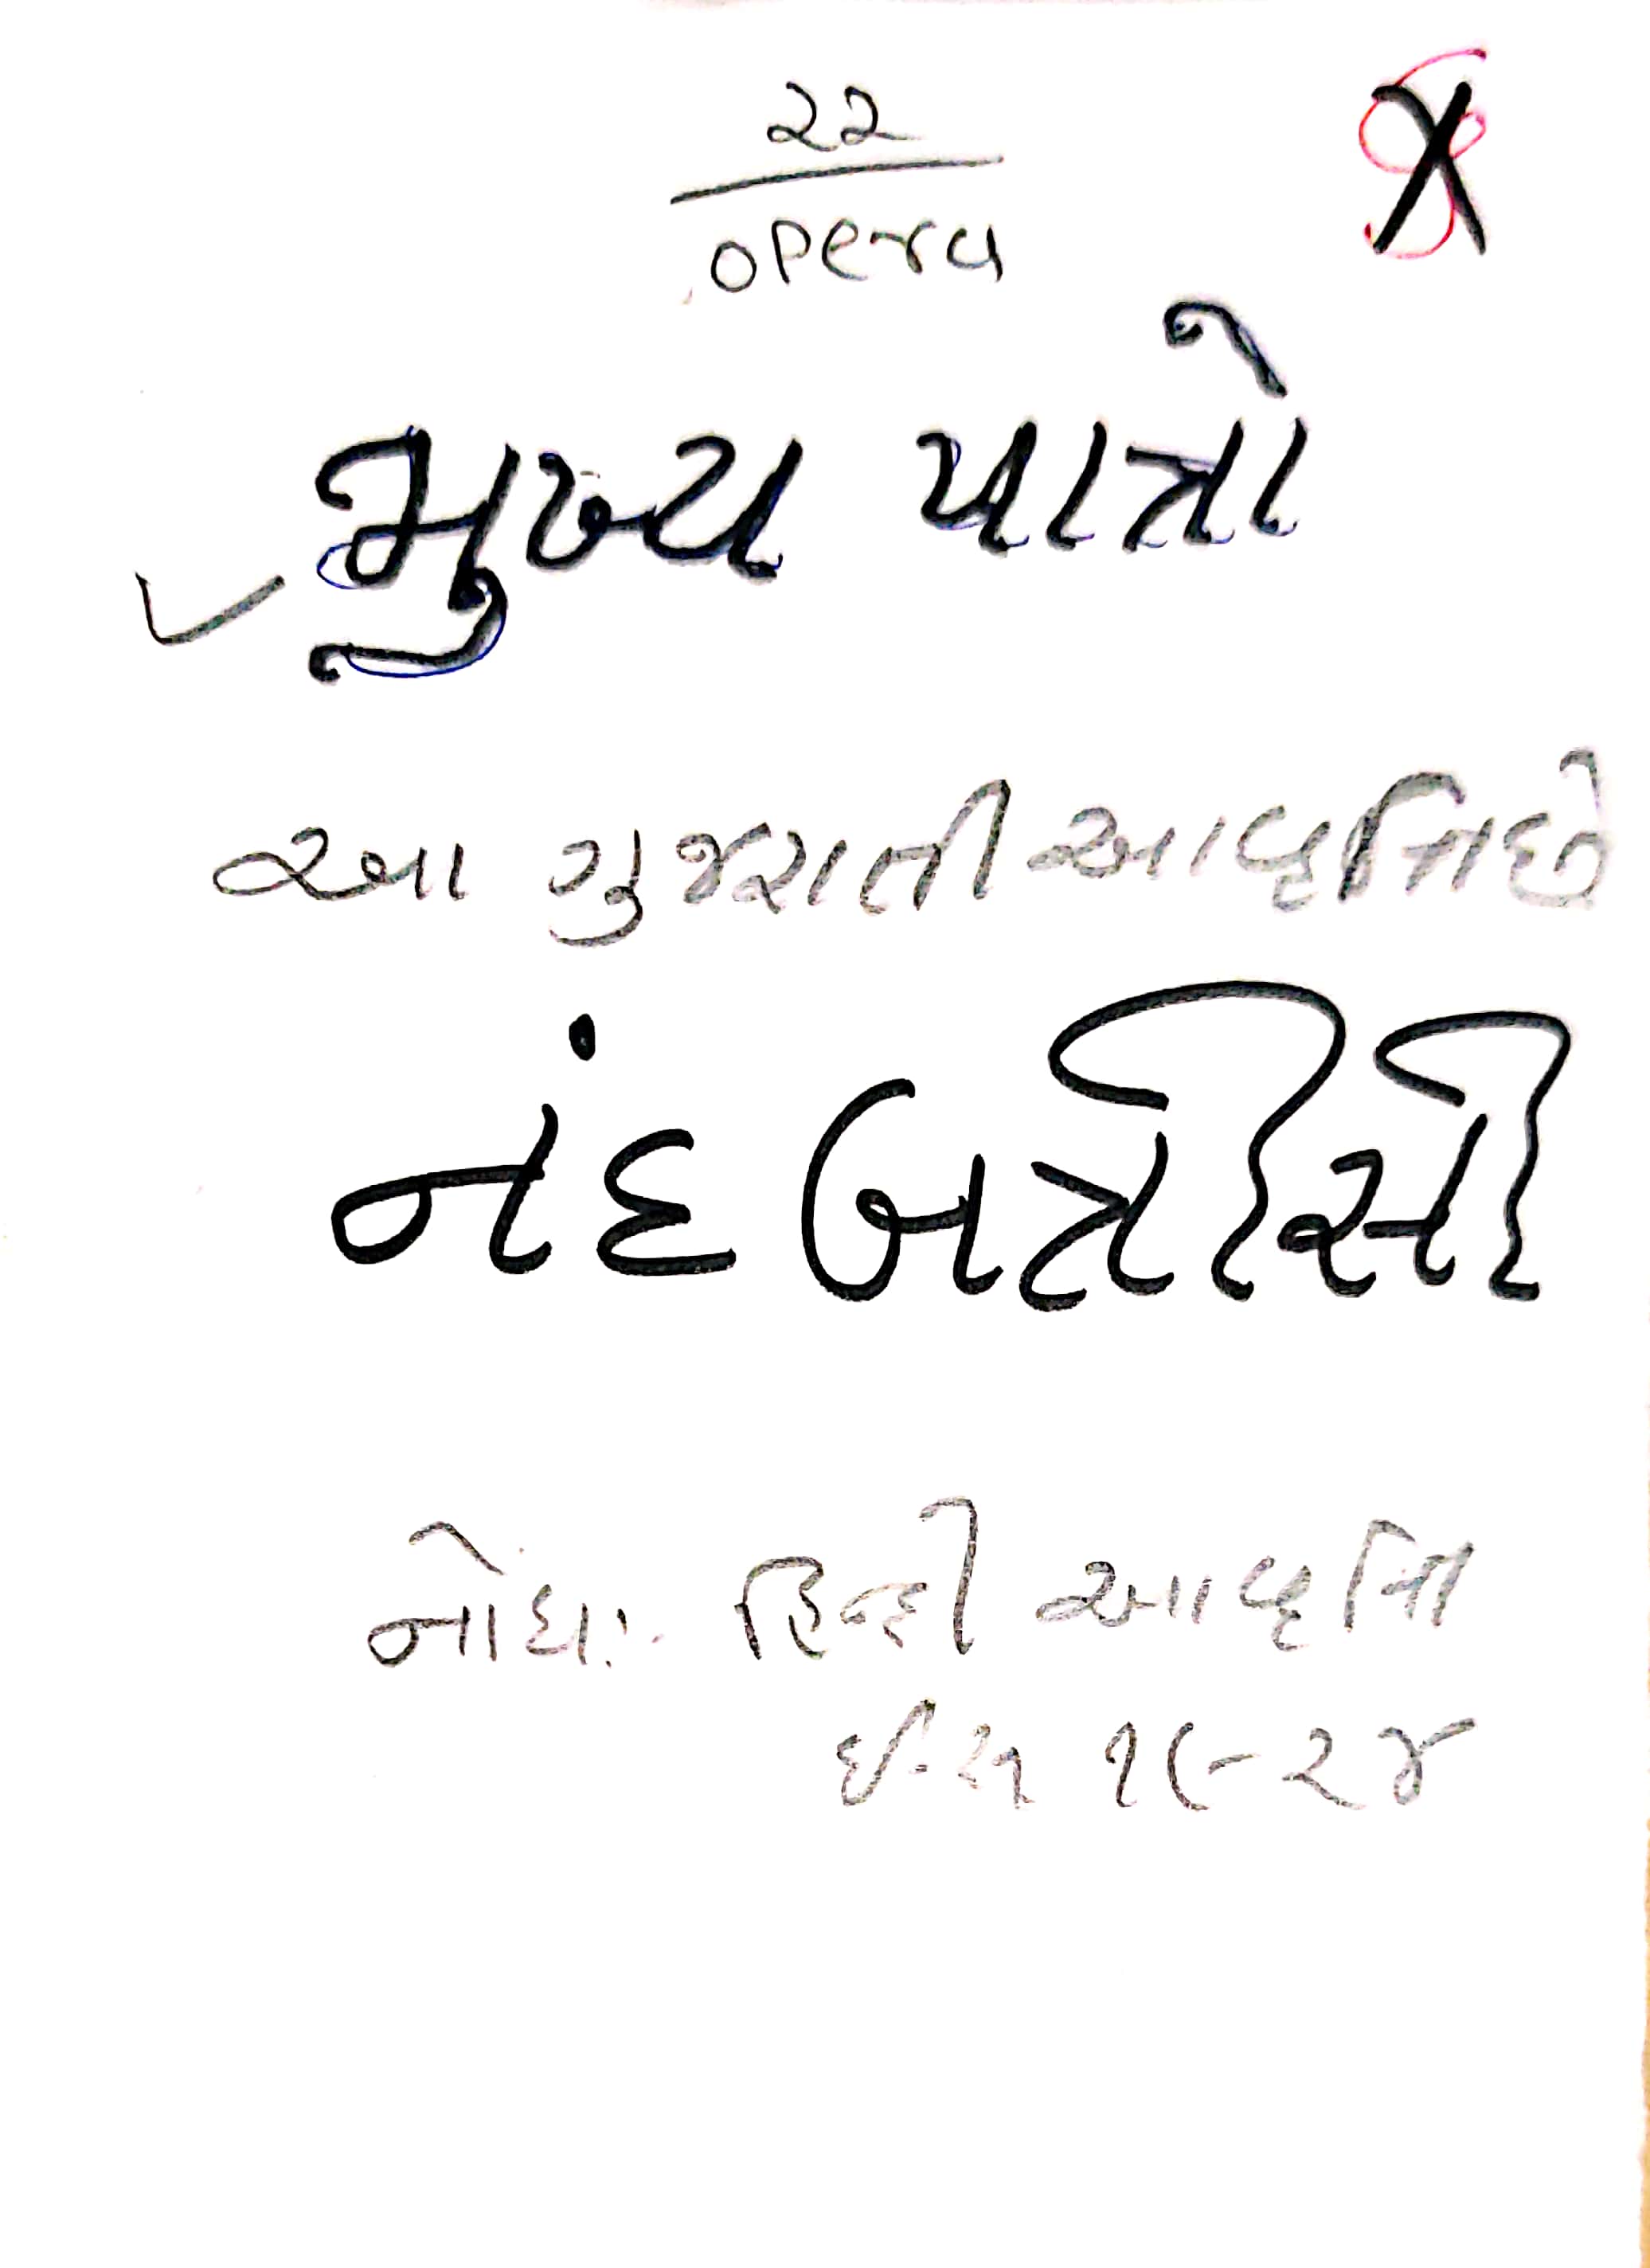 ૨૨
opera
મુખ્ય પાત્રો
આ ગુજરાતી આવૃત્તિ છે
નંદ બત્રીસી
નોંધ:- હિન્દી આવૃત્તિ
ઈ.સ ૧૯૨૪